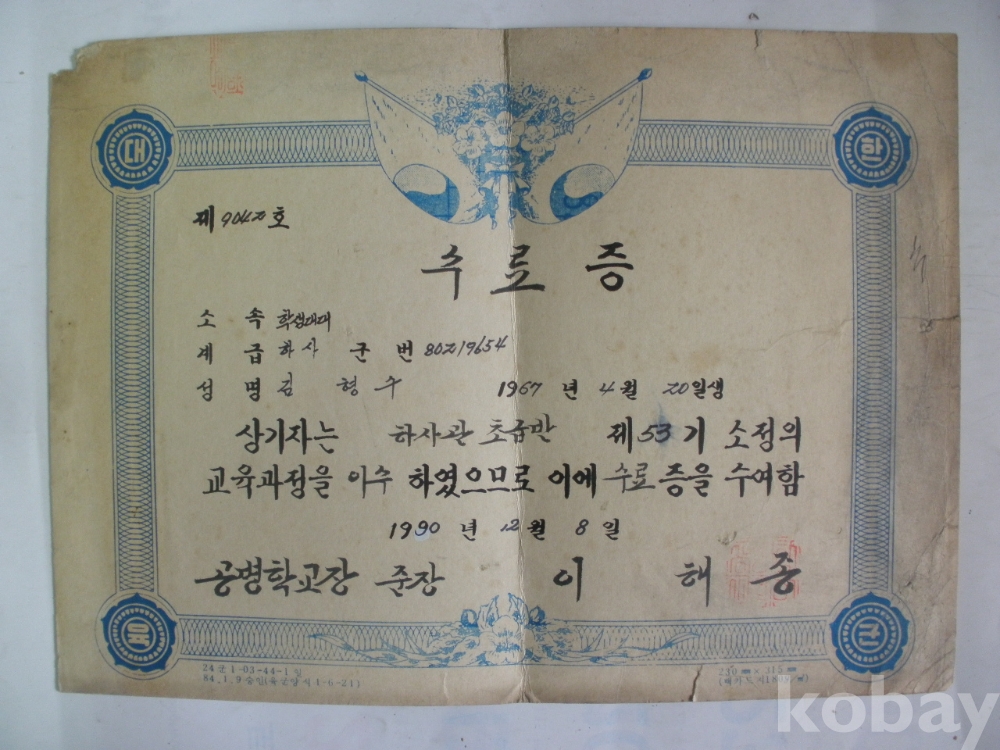 대 한
제 90420호
수료증
소 속 학생대대
계 급 하사 군 번 80219654
성 명 김 형 수 1967년 4월 20일생
상기자는 하사관 초급반 제53기 소정의
교육과정을 이수 하였으므로 이에 수료증을 수여함
1990년 12월 8일
공병학교장 준장 이 해 종
국 군
24군 1-03-44-1일
84.1.9승인
230㎜×315㎜
kobay